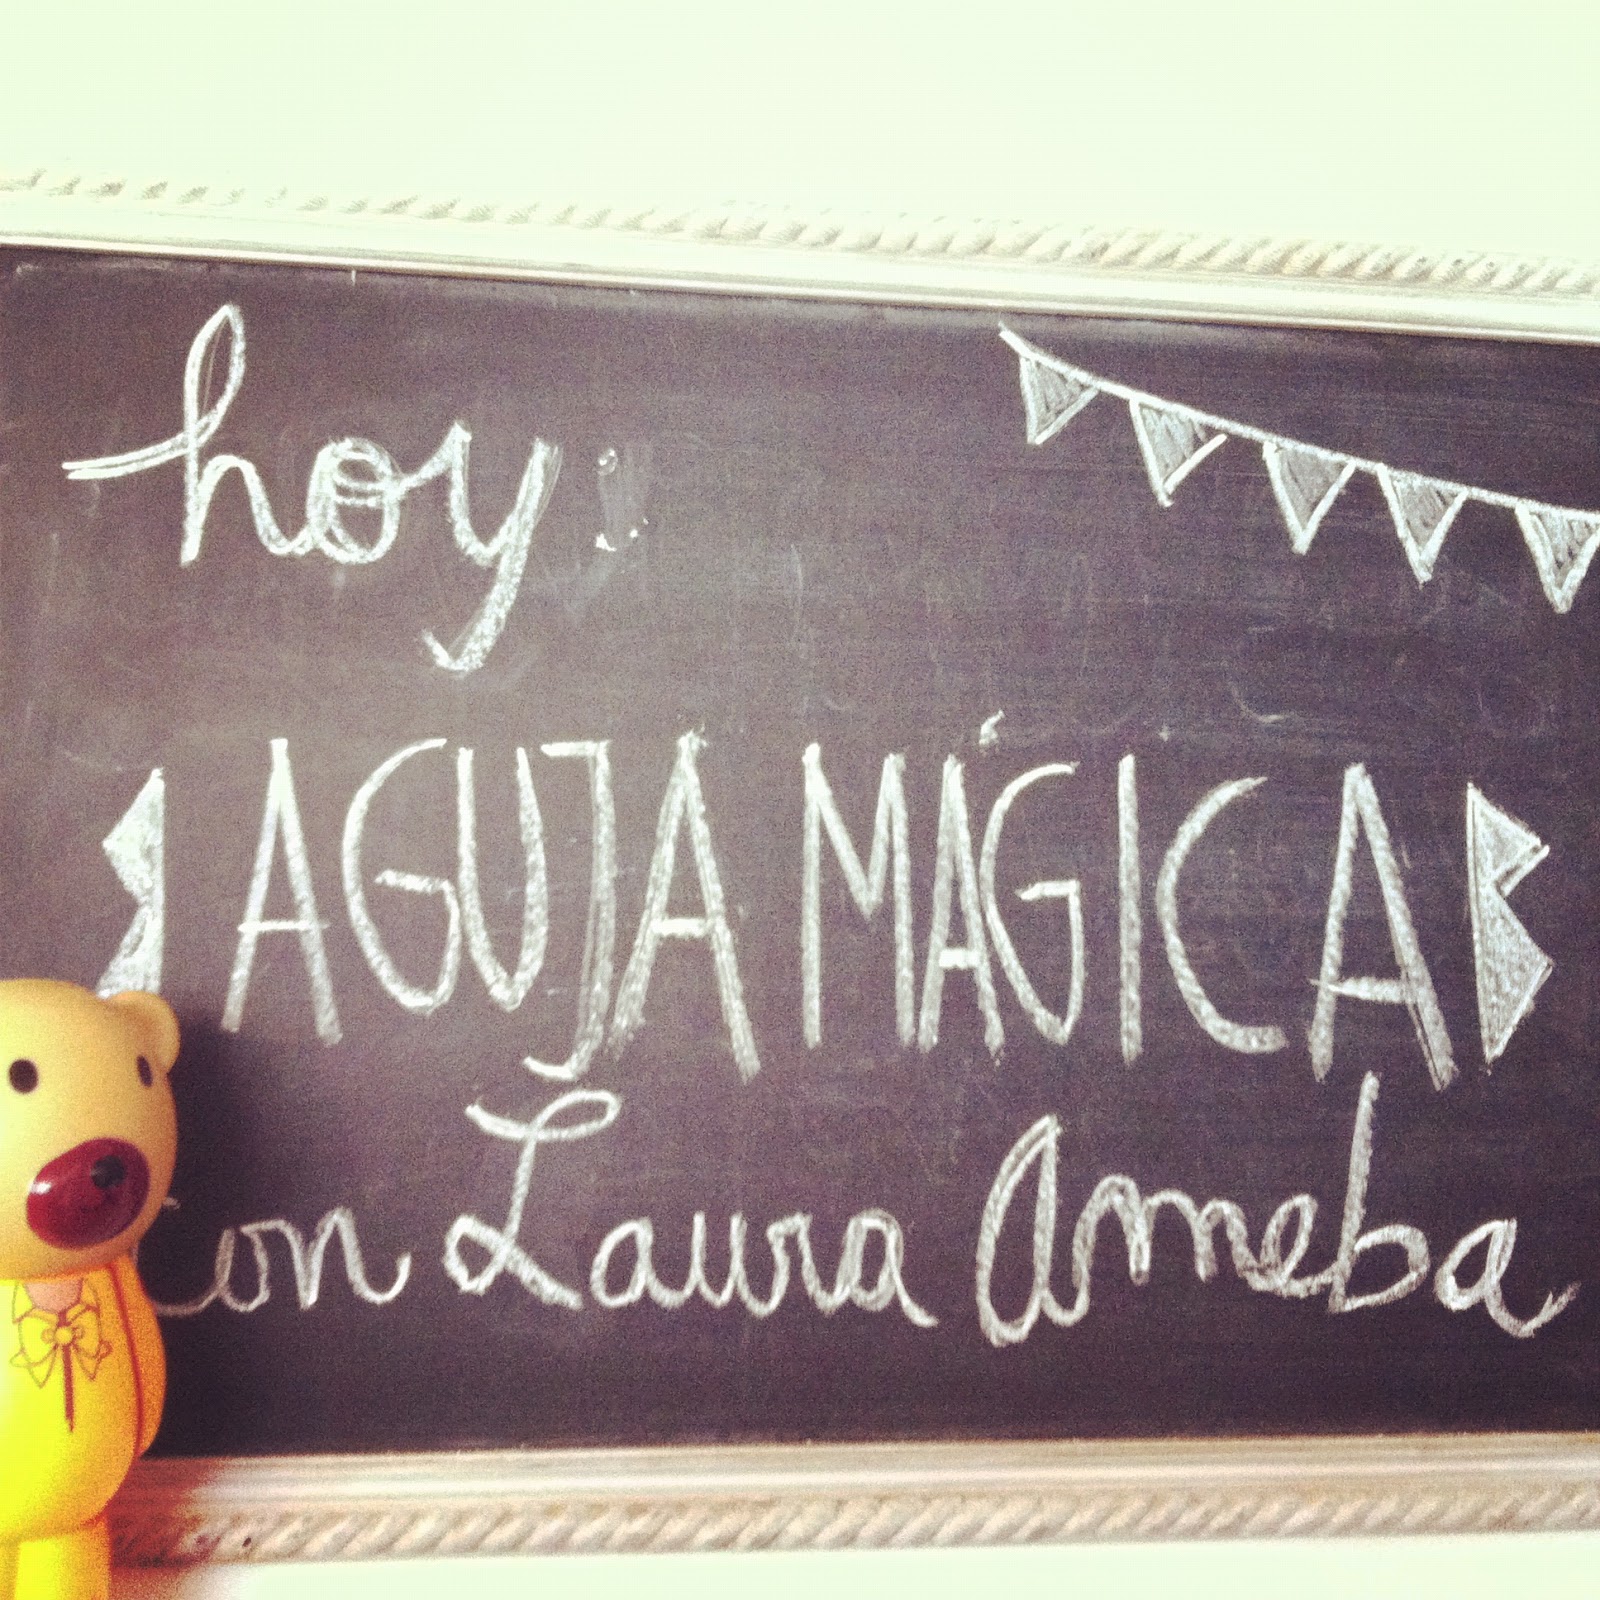 hoy:
AGUJA MÁGICA
con Laura Ameba